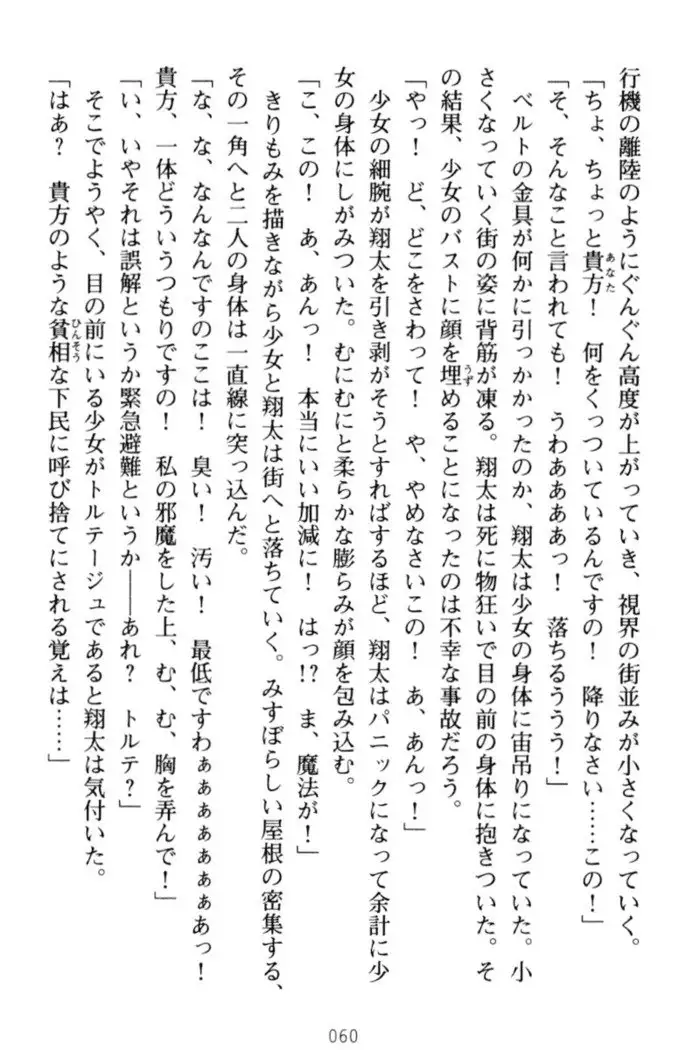 行機の離陸のようにぐんぐん高度が上がっていき、視界の街並みが小さくなっていく。
「ちょ、ちょっと貴方！　何をくっついているんですの！　降りなさい……この！」
あなた
「そ、そんなこと言われても！　うわああああっ！　落ちるううう！」
ベルトの金具が何かに引っかかったのか、翔太は少女の身体に宙吊りになっていた。小
さくなっていく街の姿に背筋が凍る。翔太は死に物狂いで目の前の身体に抱きついた。そ
の結果、少女のバストに顔を埋めることになったのは不幸な事故だろう。
うず
「やっ！　ど、どこをさわって！　や、やめなさいこの！　あ、あんっ！」
少女の細腕が翔太を引き剥がそうとすればするほど、翔太はパニックになって余計に少
女の身体にしがみついた。むにむにと柔らかな膨らみが顔を包み込む。
「こ、この！　あ、あんっ！　本当にいい加減に！　はっ!?　ま、魔法が！」
きりもみを描きながら少女と翔太は街へと落ちていく。みすぼらしい屋根の密集する、
その一角へと二人の身体は一直線に突っ込んだ。
「な、な、なんなんですのここは！　臭い！　汚い！　最低ですわぁぁぁぁぁぁぁあっ！
貴方、一体どういうつもりですの！　私の邪魔をした上、む、む、胸を弄んで！」
「い、いやそれは誤解というか緊急避難というか――あれ？　トルテ？」
そこでようやく、目の前にいる少女がトルテージュであると翔太は気付いた。
「はあ？　貴方のような貧相な下民に呼び捨てにされる覚えは……」
ひんそう
060